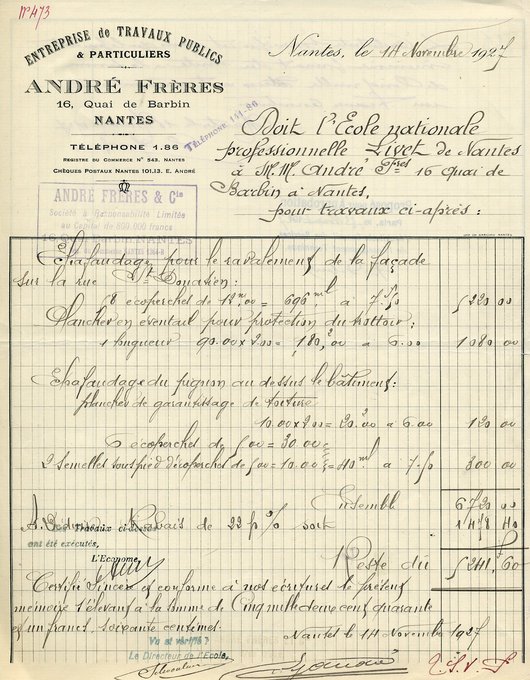 N° 473
ENTREPRISE de TRAVAUX PUBLICS
& PARTICULIERS
ANDRÉ FRÈRES
16, Quai de Barbin
NANTES
TÉLÉPHONE 1.86
REGISTRE DU COMMERCE N° 543. NANTES
CHÈQUES POSTAUX NANTES 101.13. E. ANDRÉ
TÉLÉPHONE 141-86
ANDRÉ FRÈRES & Cie
Société à Responsabilité Limitée
au Capital de 800.000 francs
Nantes, le 14 Novembre 1927
Doit l'Ecole nationale
professionnelle Livet de Nantes
à M.M. André Fres 16 quai de
Barbin à Nantes,
pour travaux ci-après :
Echafaudage pour le ravalement de la façade
sur la rue St Donatien :
58 écoperches de 12m.00 = 696 ml à 7.50 5220 00
Plancher en éventail pour protection du trottoir :
1 longueur 90.00 x 2.00 = 180,2 00 à 6.00 1080 00
Echafaudage du pignon au dessus le bâtiment :
planches de garantissage de toiture
10.00 x 2.00 = 20.00 à 6.00 120 00
6 écoperches de 5.00 = 30.00
2 semelles sous pied d'écoperches de 5.00 = 10.00 = 40 ml à 7.50 300 00
Ensemble 6720 00
A déduire, Rabais de 22 p% soit 1478 40
Les Travaux ci-dessus
ont été exécutés,
L'Econome,
Reste dû 5241,60
Certifié sincère et conforme à nos écritures le présent
mémoire s'élevant à la somme de Cinq mille deux cent quarante
et un francs, soixante centimes.
Nantes le 14 Novembre 1927
Vu et vérifié
Le Directeur de l'Ecole,
T.S.V.P.